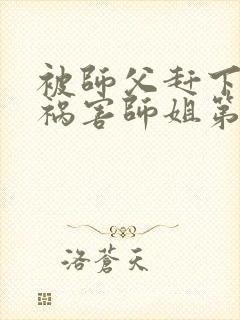 被師父赶下
禍害師姐第
洛蒼天